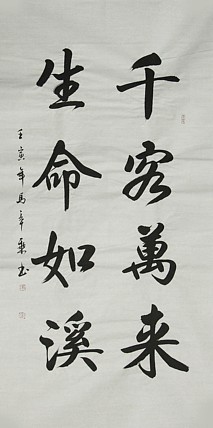 千客萬来
生命如溪
壬寅年馬年乐书